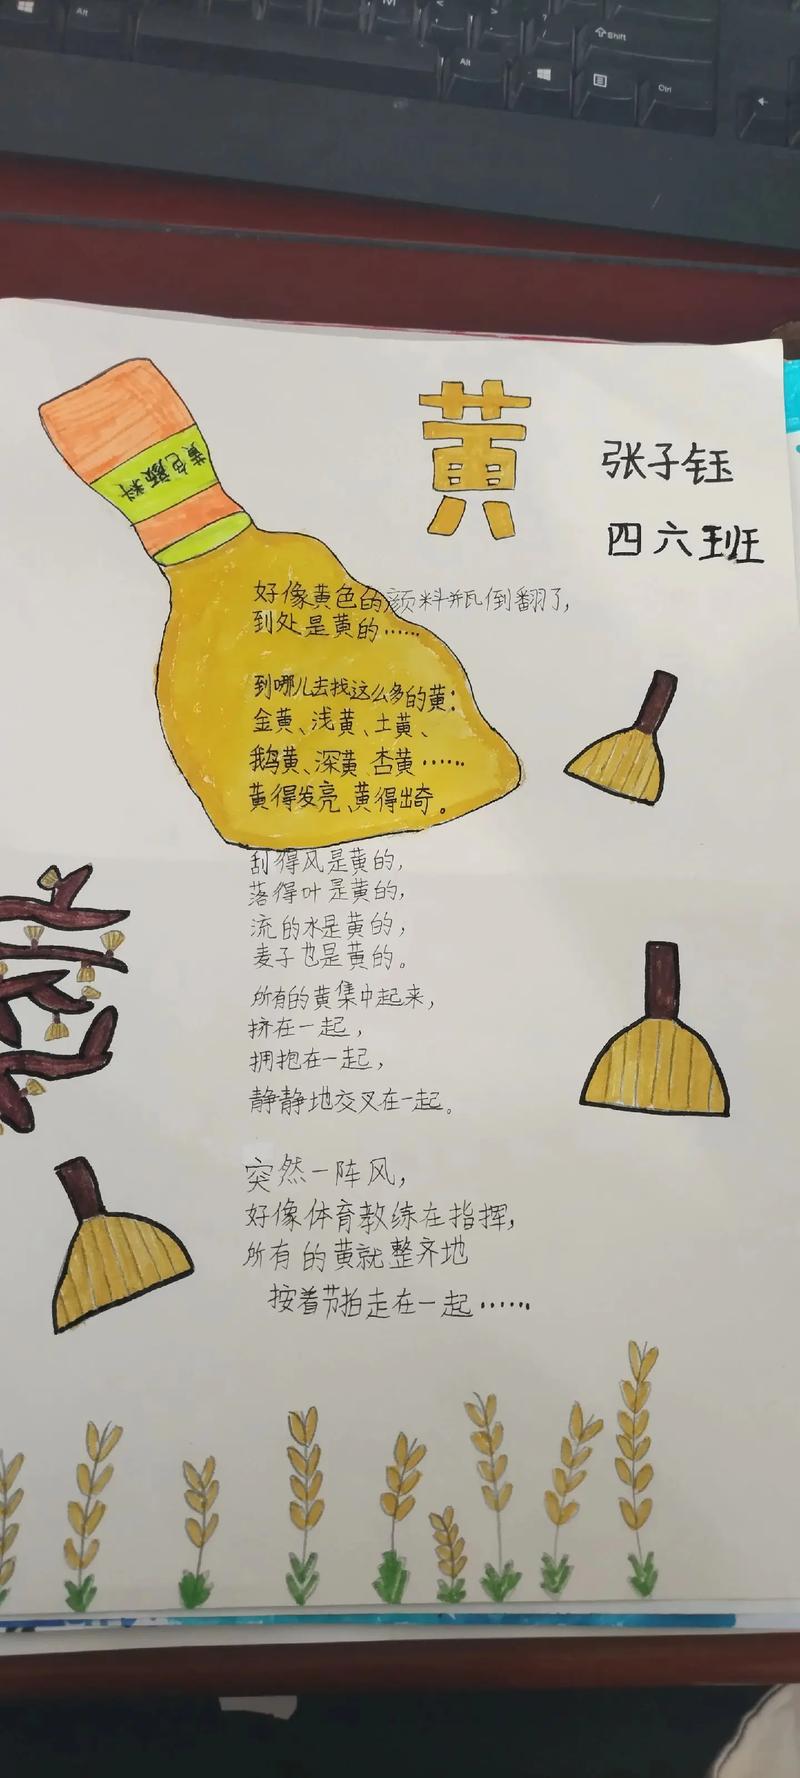 Alt
Alt
Shift
Ctrl
黄色颜料
黄
张子钰
四六班
好像黄色的颜料瓶倒翻了,
到处是黄的……
到哪儿去找这么多的黄:
金黄、浅黄、土黄、
鹅黄、深黄、杏黄……
黄得发亮、黄得出奇。
刮得风是黄的,
落得叶是黄的,
流的水是黄的,
麦子也是黄的。
所有的黄集中起来,
挤在一起,
拥抱在一起,
静静地交叉在一起。
突然一阵风,
好像体育教练在指挥,
所有的黄就整齐地
按着节拍走在一起……